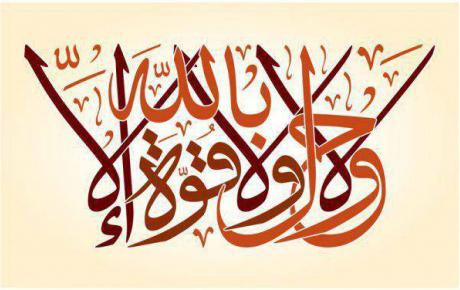 ولا حول ولا قوة إلا بالله